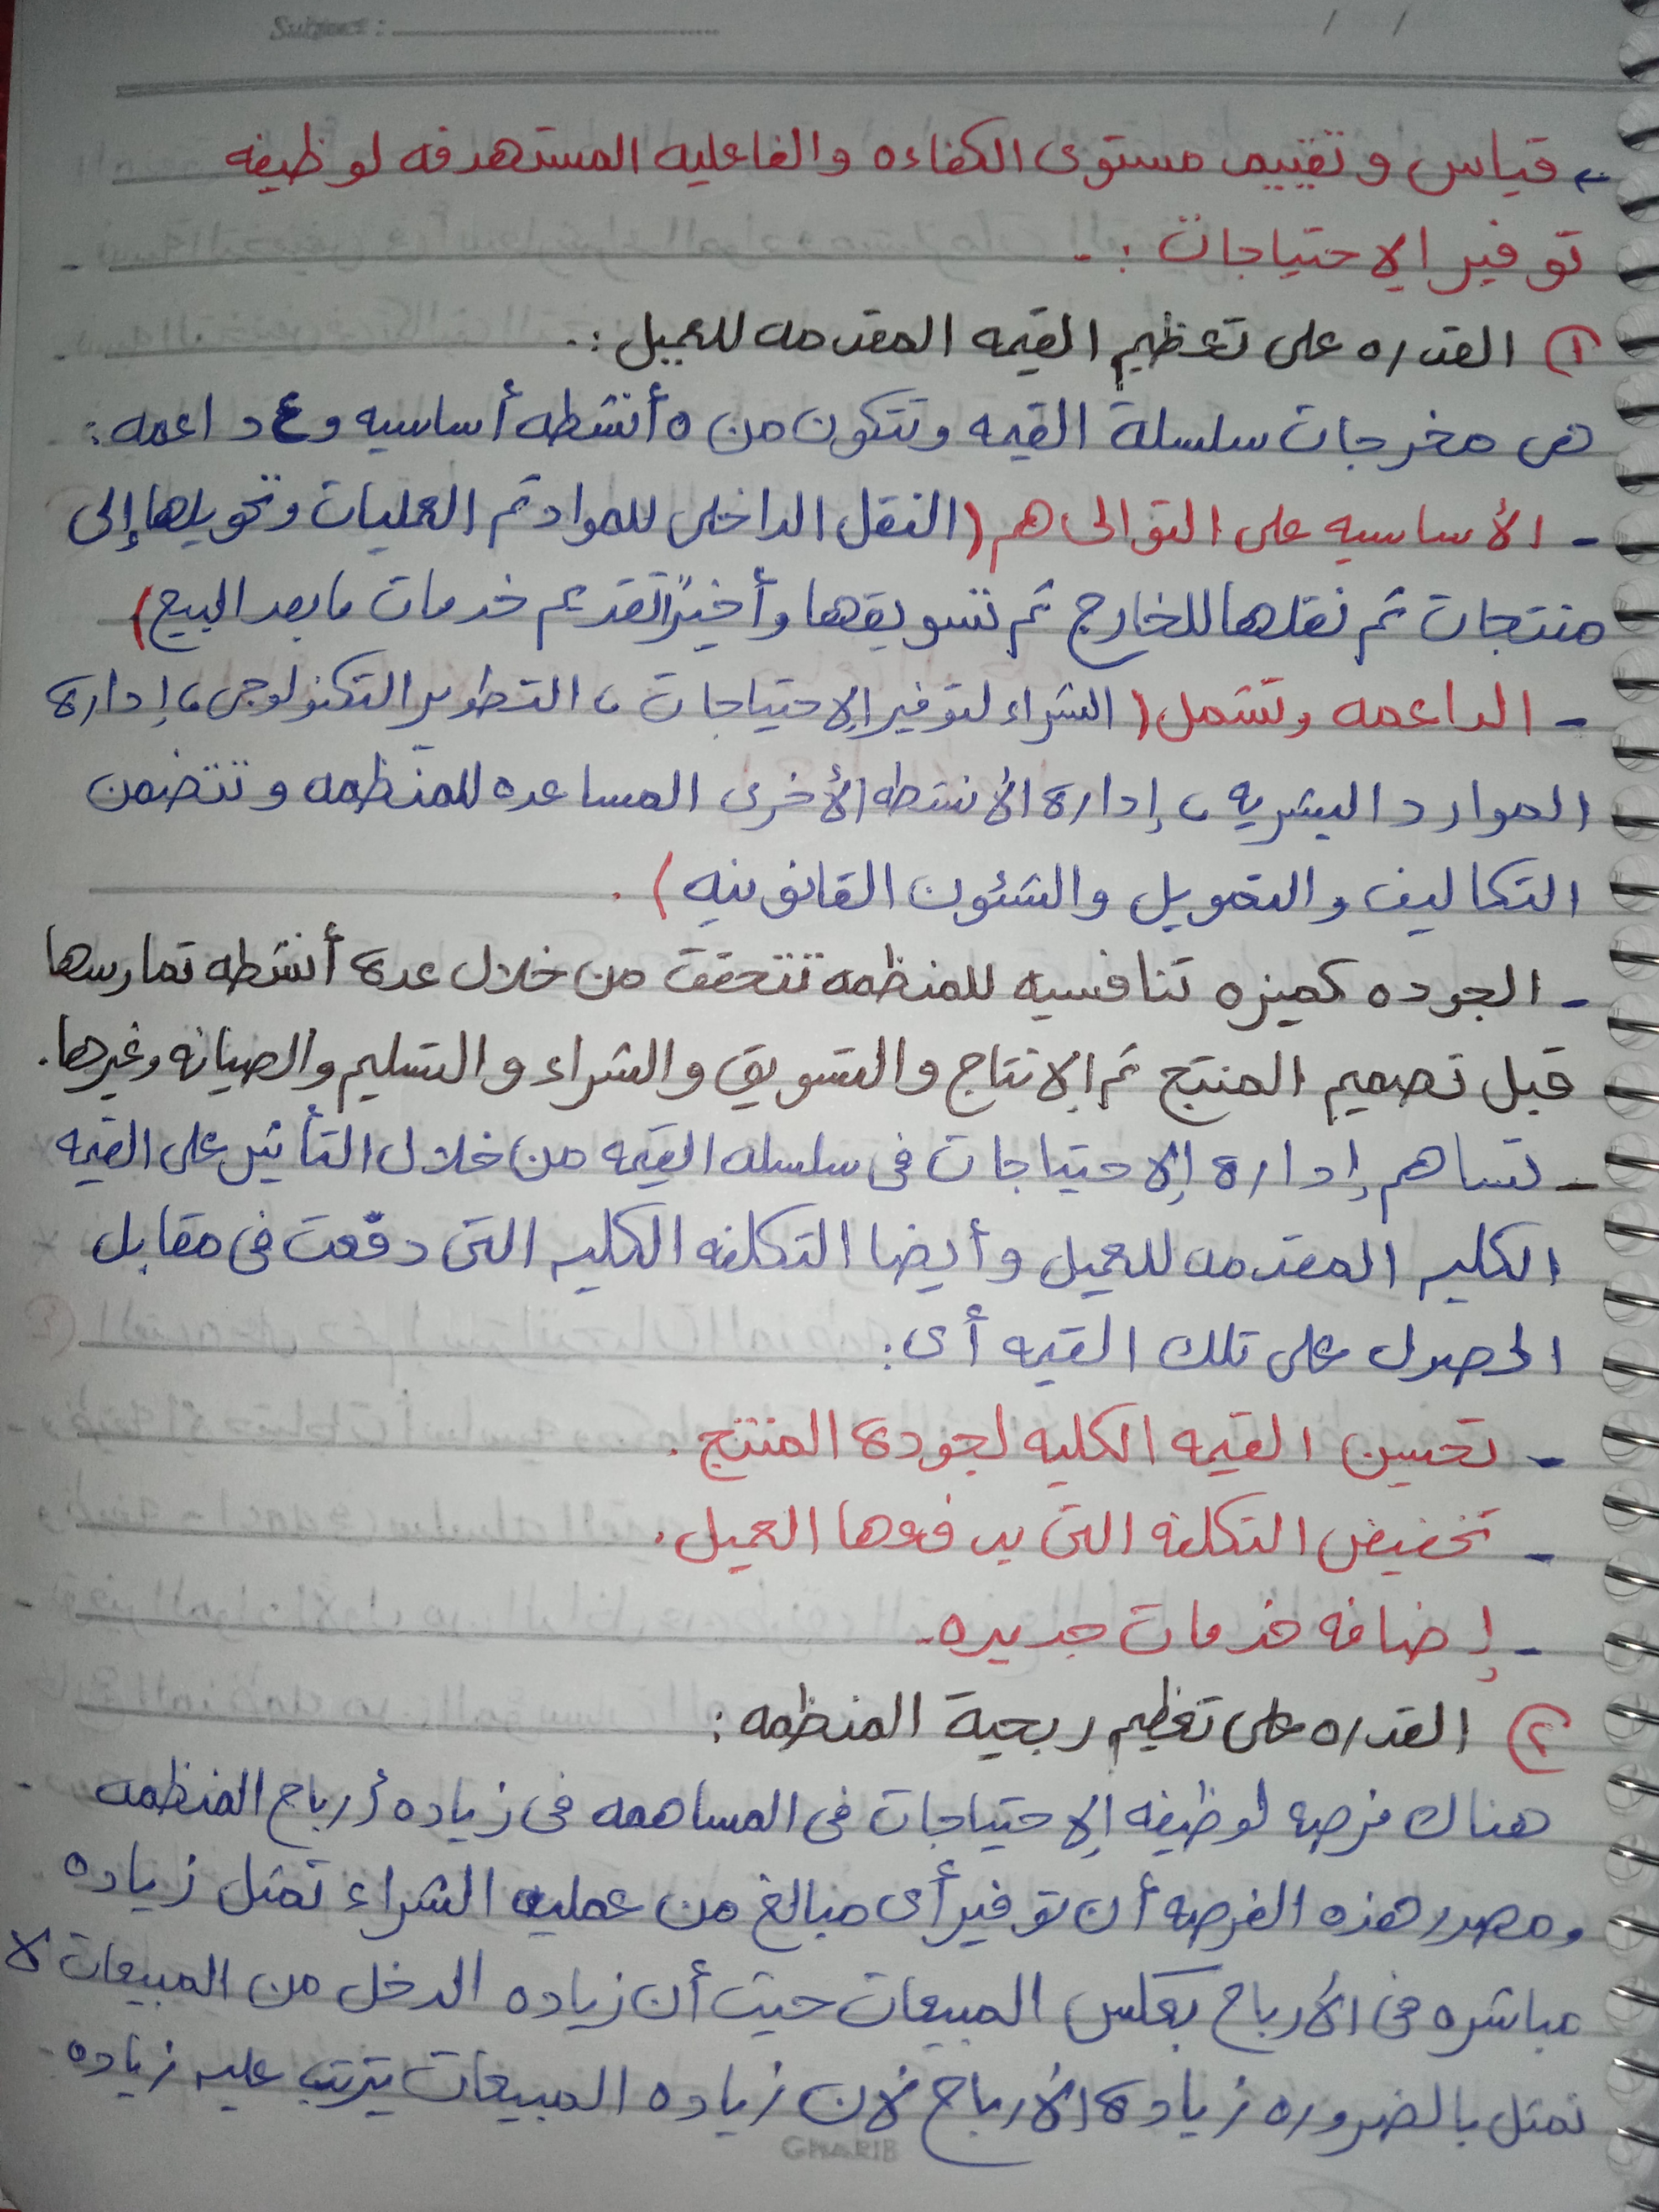 Subject:
/ /
← قياس و تقييم مستوى الكفاءه والفاعليه المستهدفه لوظيفه
توفير الإحتياجات :-
① القدره على تعظيم القيمه المقدمه للعميل :.
هى مخرجات سلسلة القيمه وتتكون من ٥ أنشطه أساسيه و ٤ داعمه :
- الأساسيه على التوالى هم (النقل الداخلى للمواد ثم العمليات وتحويلها إلى
منتجات ثم نقلها للخارج ثم تسويقها وأخيرًا تقديم خدمات مابعد البيع)
- الداعمه وتشمل (الشراء لتوفير الإحتياجات ، التطوير التكنولوجى ، إدارة
الموارد البشريه ، إدارة الأنشطه الأخرى المساعده للمنظمه وتتضمن
التكاليف والتمويل والشئون القانونيه) .
- الجوده كميزه تنافسيه للمنظمه تتحقق من خلال عدة أنشطه تمارسها
قبل تصميم المنتج ثم الإنتاج والتسويق والشراء والتسليم والصيانه وغيرها.
- تساهم إدارة الإحتياجات فى سلسله القيمه من خلال التأثير على القيمه
الكليه المقدمه للعميل وأيضا التكلفه الكليه التى دفعت فى مقابل
الحصول على تلك القيمه أى :
- تحسين القيمه الكليه لجودة المنتج .
- تخفيض التكلفه التى يدفعها العميل .
- إضافه خدمات جديده .
② القدره على تعظيم ربحية المنظمه :
هناك فرصه لوظيفه الإحتياجات فى المساهمه فى زياده أرباح المنظمه
ومصدر هذه الفرصه أن توفير أى مبالغ من عمليه الشراء تمثل زياده
مباشره فى الأرباح بعكس المبيعات حيث أن زياده الدخل من المبيعات لا
تمثل بالضروره زيادة الأرباح لأن زياده المبيعات يترتب عليه زياده
GHARIB